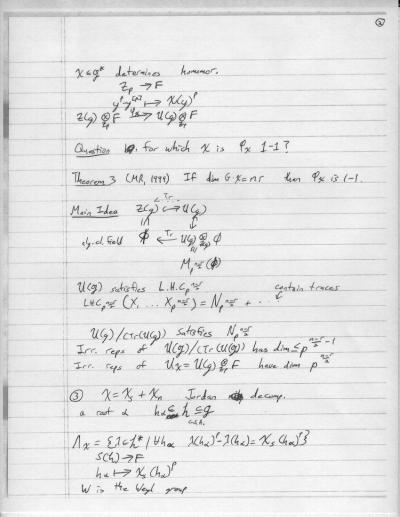 ②
χ∈g* determines homomor.
Z_p → F
y^p - y^[p] ↦ χ(y)^p
Z(g) ⊗_{Z_p} F → U(g) ⊗_{Z_p} F
Question for which χ is φ_χ 1-1?
Theorem 3 (MR, 1999) If dim G·χ = n-r then φ_χ is 1-1.
Tr
Main Idea Z(g) ↪ U(g)
cl. field Φ ← Tr U(g) ⊗_{Z(g)} Φ
M_{p^{(n-r)/2}}(Φ)
U(g) satisfies L.H.C_{p^{(n-r)/2}} contain traces
LHC_{p^{(n-r)/2}} (X, ... X_{p^{(n-r)/2}}) = N_{p^{(n-r)/2}} + ...
U(g)/(Tr(U(g)) satisfies N_{p^{(n-r)/2}}
Irr. reps of U(g)/(Tr(U(g)) has dim ≤ p^{(n-r)/2} - 1
Irr. reps of U_χ = U(g) ⊗_{Z_p} F have dim p^{(n-r)/2}
③ χ = χ_s + χ_n Jordan decomp.
α root h_α ∈ h ⊆ g
Λ_χ = {λ∈h* | ∀h_α λ(h_α)^p - λ(h_α) = χ_s(h_α)^p}
S(h) → F
h_α ↦ χ_s(h_α)^p
W is the Weyl group